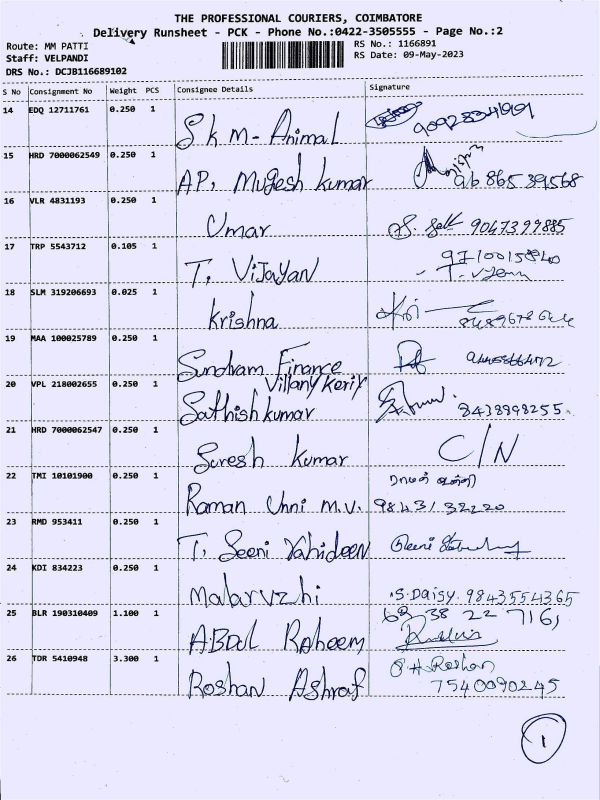 THE PROFESSIONAL COURIERS, COIMBATORE
Delivery Runsheet - PCK - Phone No.:0422-3505555 - Page No.:2
Route: MM PATTI RS No.: 1166891
Staff: VELPANDI RS Date: 09-May-2023
DRS No.: DCJB116689102
S No Consignment No Weight PCS Consignee Details Signature
14 EDQ 12711761 0.250 1
S k m - Animal
15 HRD 7000062549 0.250 1
AP. Mugesh kumar 96 865 39568
16 VLR 4831193 0.250 1
Umar 9047399885
17 TRP 5543712 0.105 1
T. Vijayan
18 SLM 319206693 0.025 1
krishna
19 MAA 100025789 0.250 1
Sundram Finance
20 VPL 218002655 0.250 1
Sathish kumar 8438998255.
21 HRD 7000062547 0.250 1 C/N
Suresh kumar
22 TMI 10101900 0.250 1
Raman Unni m.v. 98431 32220
23 RMD 953411 0.250 1
T. Seeni Vahideen
24 KDI 834223 0.250 1
Malarvzhi S. Daisy. 9843554365
25 BLR 190310409 1.100 1 63 38 22 7161
ABDUL Raheem
26 TDR 5410948 3.300 1 P.H. Roshan
Roshan Ashraf 7540090245
1